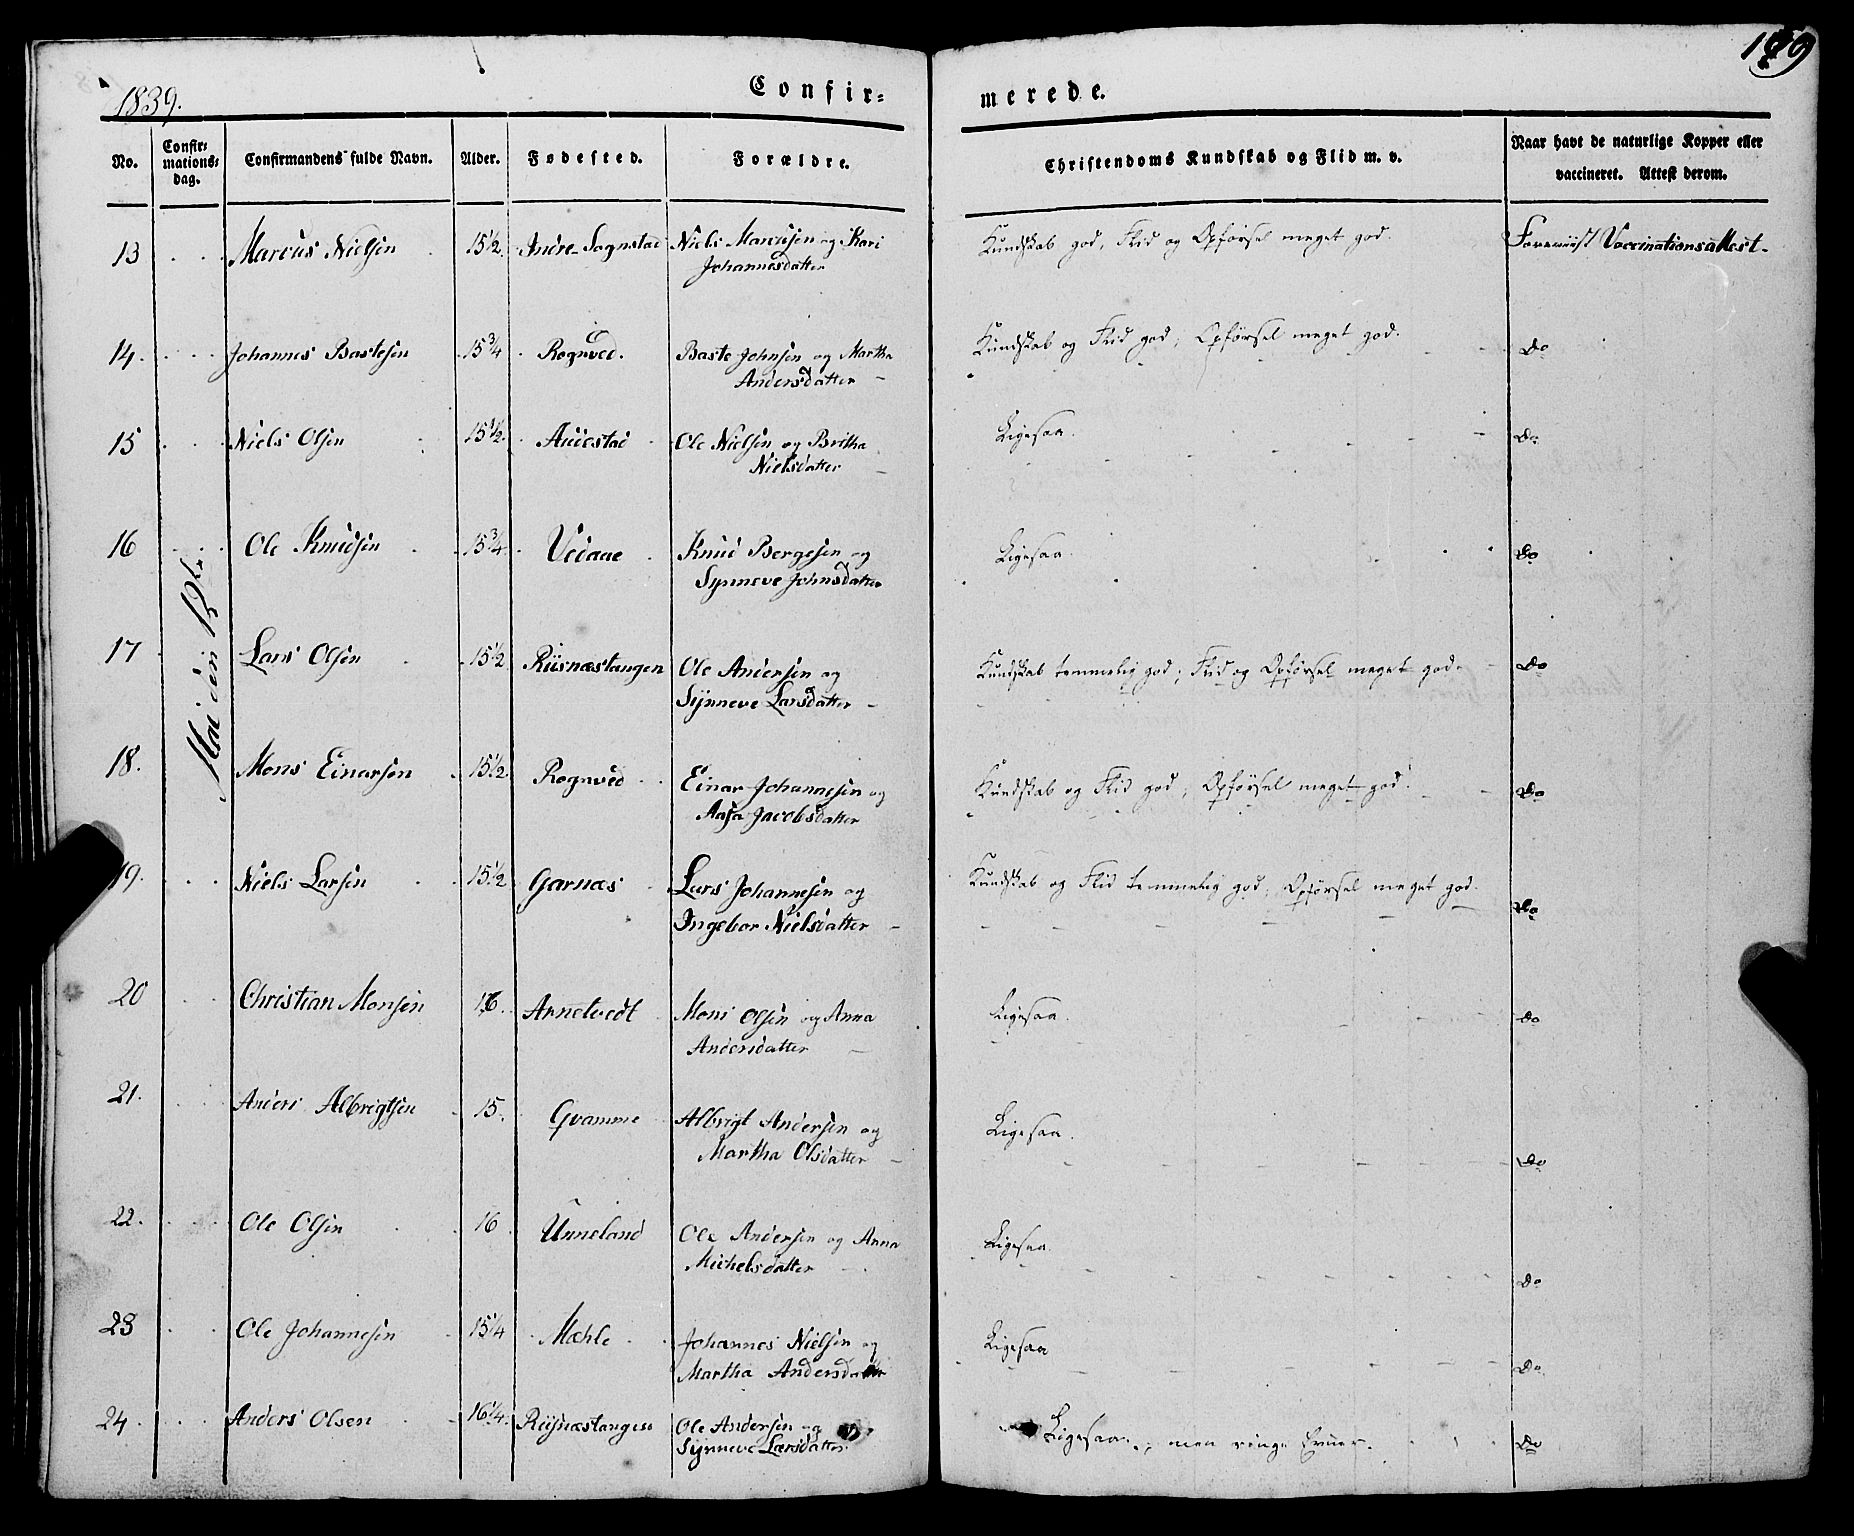 1839.
Confir=
merede.
No.
Confir=
mations=
dag.
Confirmandens fulde Navn.
Alder.
Fødested.
Forældre.
Christendoms Kundskab og Flid m. v.
Naar havt de naturlige Kopper eller
vaccineret. Attest derom.
Mai den 12te
13 Marcus Nielsen 15 1/2 Indre-Sognstad Niels Marcusen og Kari Kundskab god, Flid og Opførsel meget god. Foreviist Vaccinationsattest.
Johannesdatter
14. Johannes Bastesen 15 3/4 Rognved. Baste Johnsen og Martha Kundskab og Flid god; Opførsel meget god. Do
Andersdatter
15 Niels Olsen 15 1/2 Audestad Ole Nielsen og Britha Ligesaa. Do
Nielsdatter
16 Ole Knudsen 15 3/4 Vedaae Knud Bergesen og Ligesaa Do
Synneve Johnsdatter
17 Lars Olsen 15 1/2 Riisnæstangen Ole Andersen og Kundskab temmelig god; Flid og Opførsel meget god. Do
Synneve Larsdatter
18. Mons Einarsen 15 1/2 Rognved Einar Johannesen og Kundskab og Flid god; Opførsel meget god. Do
Aasa Jacobsdatter
19. Niels Larsen 15 1/2 Garnæs Lars Johannesen og Kundskab og Flid temmelig god; Opførsel meget god. Do
Ingebor Nielsdatter
20 Christian Monsen 16 Arnetvedt Mons Olsen og Anna Ligesaa. Do
Andersdatter
21. Anders Albrigtsen 15. Gvamme Albrigt Andersen og Ligesaa. Do
Martha Olsdatter
22. Ole Olsen 16 Unneland Ole Andersen og Anna Ligesaa. Do
Michelsdatter
23 Ole Johannesen 15 1/4 Mæhle Johannes Nielsen og Ligesaa Do
Martha Andersdatter
24. Anders Olsen 16 1/4. Riisnæstangen Ole Andersen og Ligesaa; men ringe Evner. Do
Synneve Larsdatter